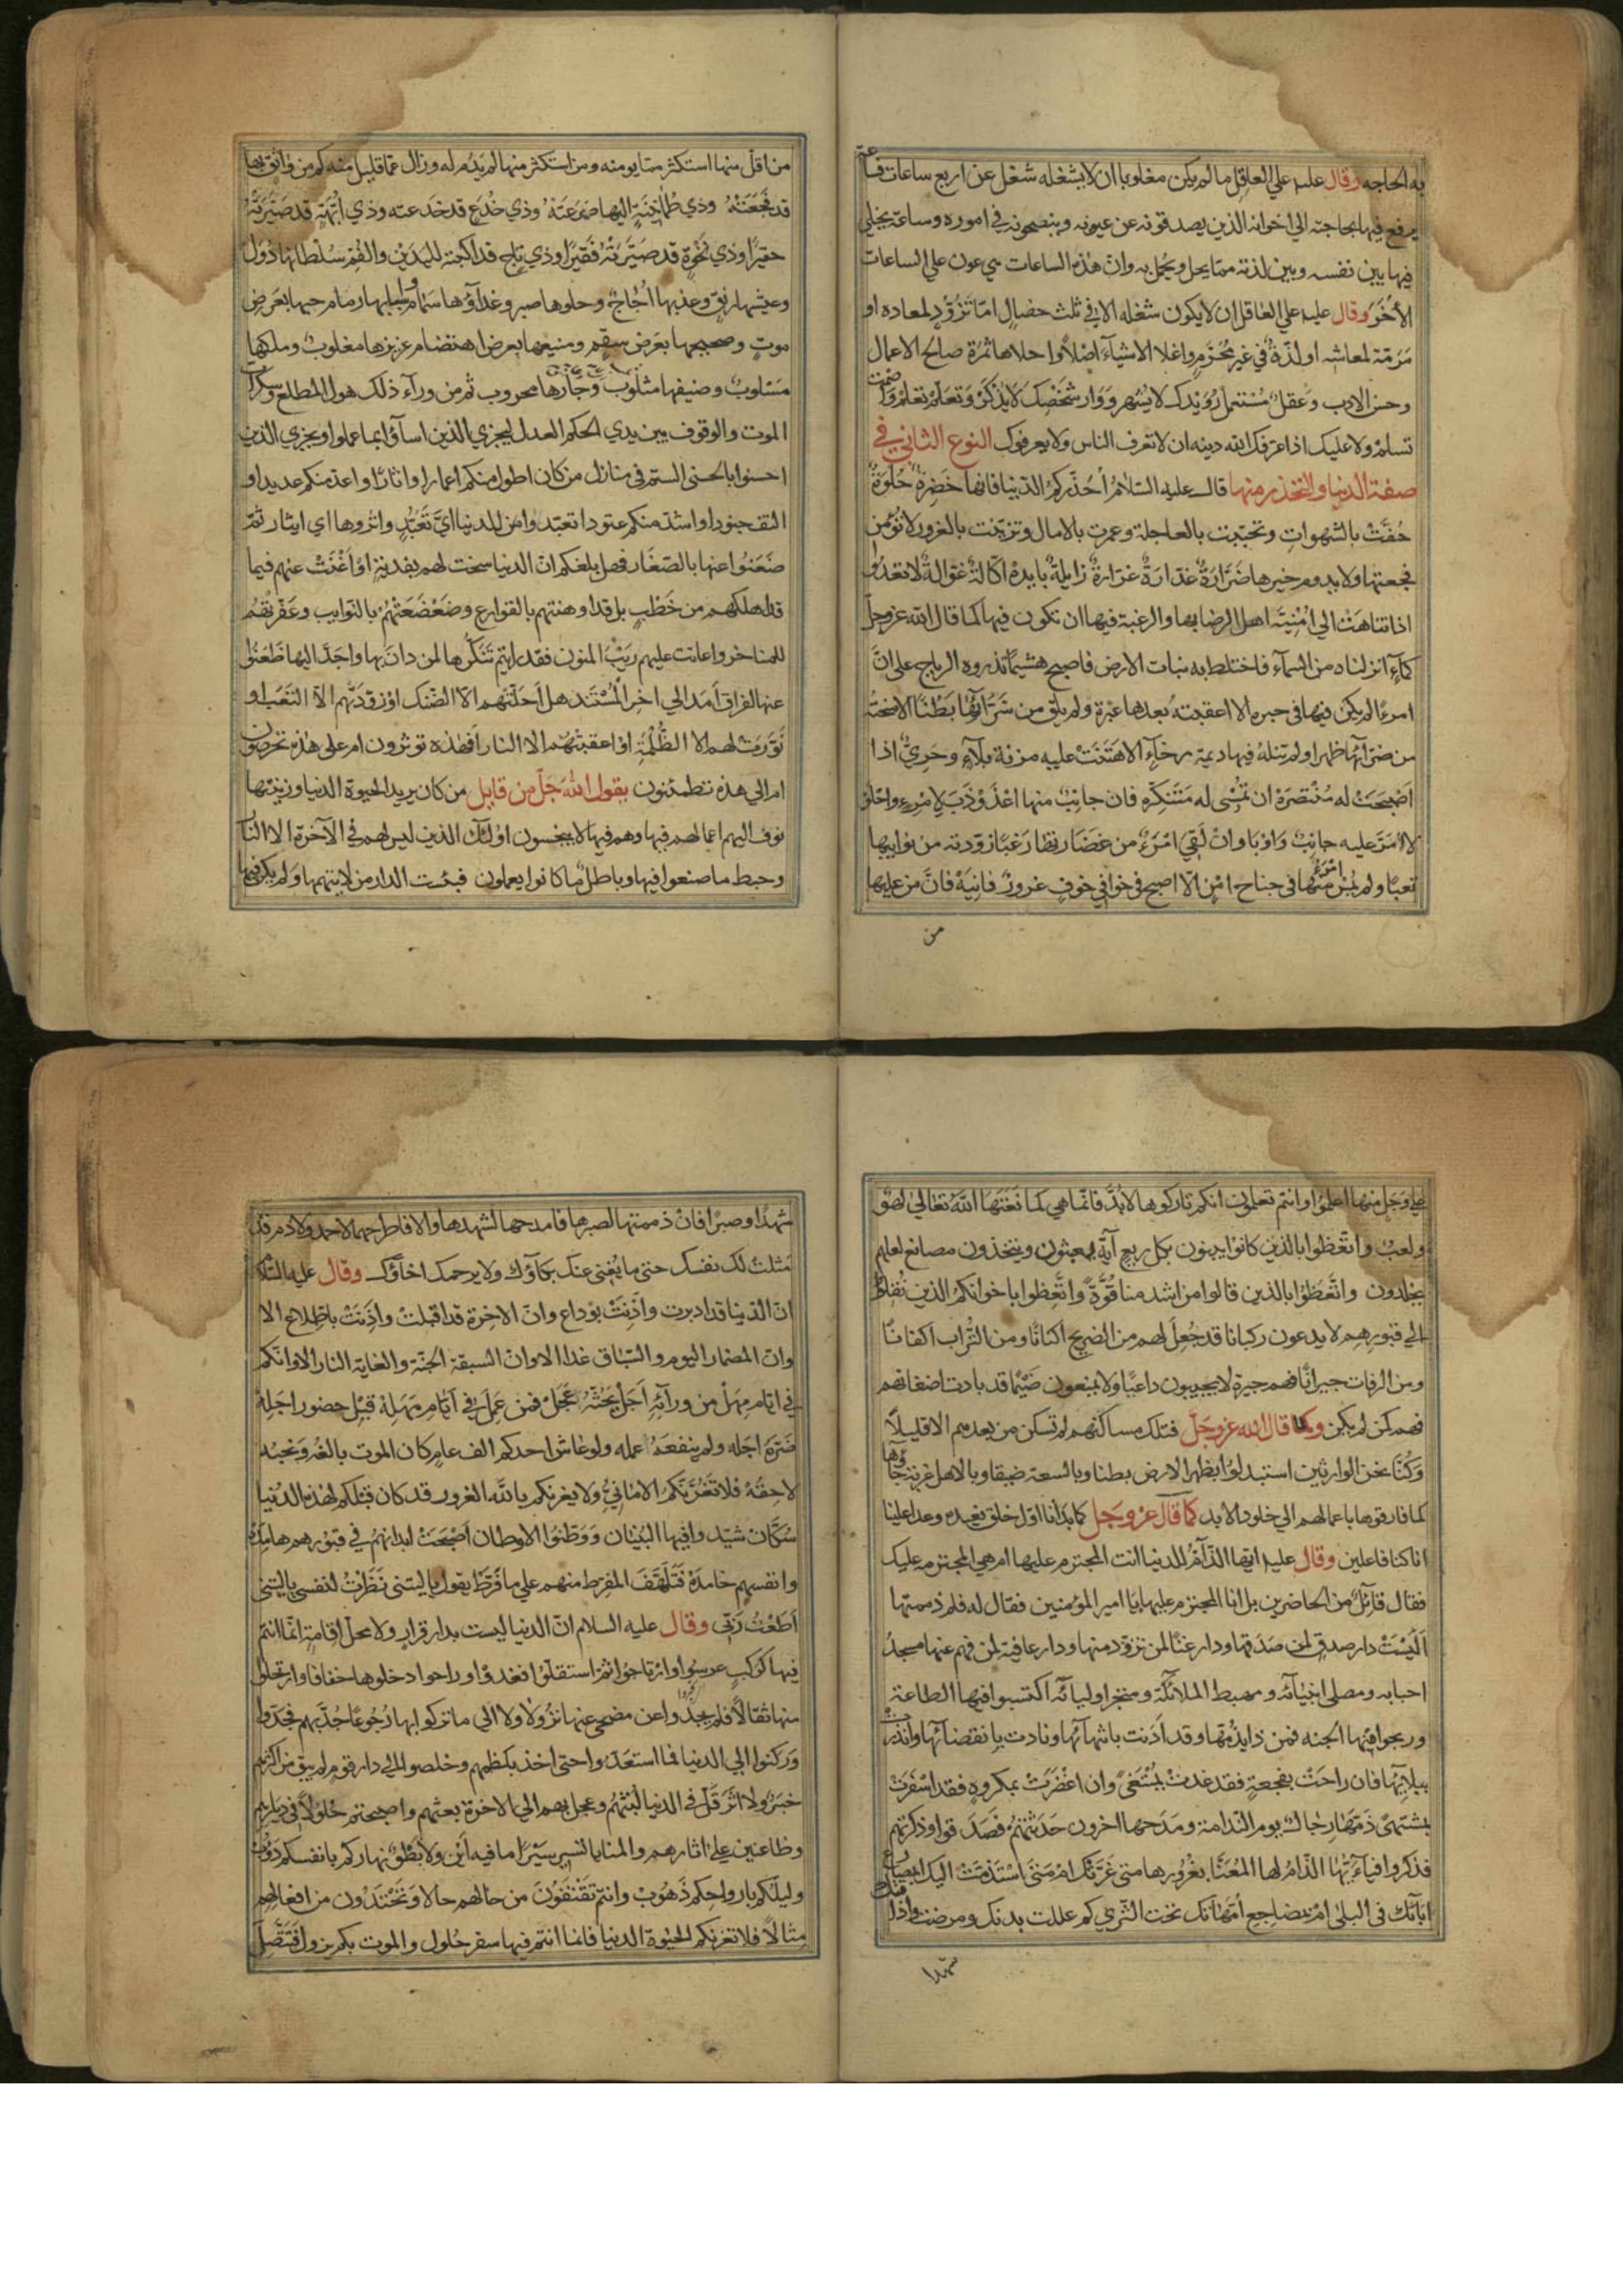 به الحاجه وقال عليه علي العاقل ما لم يكن مغلوبا ان لا يشغله شغل عن اربع ساعات
يرفع فيها بحاجته الي اخوانه الذين يصدقونه عن عيوبه وينصحونه في اموره وساعة يخلي
فيها بين نفسه وبين لذته مما يحل ويجمل به وان هذه الساعات هي عون علي الساعات
الأخر وقال عليه علي العاقل ان لا يكون شغله الا في ثلث خصال اما تزود لمعاده او
مَرَمّة لمعاشه او لذة في غير محرم واغلا الاشياء اصلا واحلاها ثمرة صالح الاعمال
وحسن الادب وعقل مستعمل رويدك لا يشهر ووار شخصك لا يذكر وتعلم تعلم واصمت
تسلم ولا عليك اذا عرفك الله دينه ان لا تعرف الناس ولا يعرفوك النوع الثاني في
صفة الدنيا والتحذر منها قال عليه السلام أحذركم الدنيا فانها خَضِرةٌ حُلْوَةٌ
حُفّتْ بالشهواتِ وتحببت بالعاجلة وعمرت بالامال وتزينت بالغرور لا تؤمن
فجعتها ولا يدوم خيرها ضَرّارةٌ غدّارةٌ غرّارةٌ زايلةٌ بايدةٌ اكّالةٌ غوّالةٌ لا تعدوا
اذا تناهت الي امنية اهل الرضا بها والرغبة فيها ان تكون فيها كما قال الله عزوجل
كمآء انزلناه من السمآء فاختلط به نبات الارض فاصبح هشيما تذروه الرياح علي انّ
امرءًا لم يكن فيها في حبره الا اعقبته بعدها عبرة ولم يلق من سرّائها بَطْنًا الا منحته
من ضرائها ظهرا ولم تنله فيها ديمة رخآءٍ الا هَتَنَتْ عليه مزنة بلآءٍ وحَرِيّ اذا
اَصْبحَتْ له مُنْتصِرَة ان تُمْسي له مَتَنكّرة فان جانِبٌ منها اعْذَوْذَبَ لامْرِءٍ واحلولا
امَرّ عليه جانبٌ واوْبا وان لَقِيَ امْرَءٌ من غضارتها رَغَبًا زوّدته من نوائبها
تعبًا ولم يُمْسِ امْرَءٌ منها في جناح امْنٍ الّا اصبح في خوافي خوفٍ غرورٌ فانية فانٍ من عليها
من
من اقلّ منها استكثر مما يومنه ومن استكثر منها لم يَدُم له وزال عمّا قليل منه كم من واثق بها
قد فَجَعَتْهُ وذي طمأنينةٍ اليها صَرَعَتهُ وذي خُدع قد خدعته وذي اُبّهةٍ قد صَيّرَتهُ
حقيرًا وذي نَخْوةٍ قد صيّرتْه فَقيرًا وذي تاج قد اكبته لليَدَيْنِ والفم سُلْطانها دُوَلٌ
وعيشها رنقٌ وعذبها اُجَاجٌ وحلوها صبر وغداؤها سِمَام واسبابها رمام حيها بعَرَضِ
موتٍ وصحيحها بعَرَض سقم ومنيعها بعرض اهتضام عزيزها مغلوبٌ وملكها
مَسْلوبٌ وضيفها مثلُوب وجارها محروب ثم من ورآء ذلك هول المطلع وسكرات
الموت والوقوف بين يدي الحكم العدل ليجزي الذين اسآؤا بما عملوا ويجزي الذين
احسنوا بالحسنى الستم في منازل من كان اطول منكم اعمارا واثارًا واعدّ منكم عديدا و
اكثف جنودا واشدّ منكم عتودا تعبّدوا من للدنيا ايّ تَعَبّدٍ واثروها اي ايثار ثم
ضَعَنُوا عنها بالصّغار فهل بلغكم انّ الدنيا سخت لهم بفديةٍ او اَغْنَتْ عنهم فيما
قد اهلكتهم من خَطْبٍ بل قد اوهنتهم بالقوارع وضَعْضَعَتْهُمْ بالنوايب وعَفّرتهم
للمناخر واعانت عليهم رَيْبَ المنون فقد رايتم تَنَكّرها لمن دانَ بها واجدّ اليها ظَعَنُوا
عنها لفراق اَمَد الي اخر المُسْتَند هل اَحَلّتهم الا الضّنْك اوْ زوّدَتهُم الّا التَعَب او
نَوّرَت لهم الا الظُلْمَة اوْ اعقبتهم الا النار اَفهذه توثرون ام على هذه تحرصون
ام الي هذه تطمئنون يقول الله جَلّ مِن قايِل من كان يريد الحيوة الدنيا وزينتها
نوف اليهم اعمالهم فيها وهم فيها لا يبخسون اولٓئك الذين ليس لهم في الآخرة الا النار
وحبط ما صنعوا فيها وباطل ما كانوا يعملون فبئست الدار من لا يتهمها ولم يكن فيها
علي وَجَلٍ منها اعلموا وانتم تعلمون انكم تاركوها لا بُدّ فانّما هي كما نَعَتها الله تعالي لهوٌ
ولعبٌ واتّعظوا بالذين كانوا يبنون بكل ريع آية يعبثون ويتخذون مصانع لعلهم
يخلدون واتّعظوا بالذين قالوا من اشد منا قُوّة واتّعِظوا باخوانكم الذين نُقِلوا
الي قبورهم لا يدعون ركبانا قد جُعِلَ لهم من الضريح اكنانًا ومن التُراب اكفانًا
ومن الرفات جيرانًا فهم جيرة لا يجيبون داعيًا ولا يمنعون ضَيْمًا قد بادت اضغانهم
فهم كمن لم يكن وكما قال الله عزوجل فتلك مساكنهم لم تسكن من بعدهم الا قليلًا
وَكُنّا نحن الوارثين استبدلوا بظهر الارض بطنا وبالسعة ضيقا وبالاهل غربة جاؤها
كما فارقوها باعمالهم الي خلود الابد كما قال عزوجل كما بَدَأنا اوّل خلق نعيده وعدا علينا
انا كنا فاعلين وقال عليه ايها الذّآمُّ للدنيا انت المجترم عليها ام هي المجترمه عليك
فقال قائلٌ من الحاضرين بل انا المجترم عليها يا امير المؤمنين فقال له فلم ذممتها
اَلَيْسَتْ دار صدقٍ لمن صَدَقها ودار غنًا لمن تزوّد منها ودار عافية لمن فهم عنها مسجدُ
احبابه ومصلى انبيآئه ومهبط الملائكة ومتجر اوليآئه اكتسبوا فيها الطاعة
وربحوا فيها الجنه فمن ذا يذُمّها وقد اَذنت بانتهآئها ونادت بانقضآئها وانذرت
ببلائها فان راحَتْ بفجعةٍ فقد غدتْ بمُبْتَغىً وان اعْفَرَتْ بمكروهٍ فقد اسْفَرَتْ
بمشتهىً ذمّهَا رجالٌ يوم النّدامة ومَدَحَها اخرون حَدّثتهُمْ فصَدَقوا وذكّرتهم
فذكروا فيآءيّها الذّامُّ لها المُعَنّا بغُرُورها متى غَرّتك ام متى اسْتذَمّتْ اليك ابمصارع
ابائك في البلى امْ بمَضاجِع اُمّهاتك تحت الثرى كم عللت بيدك ومرضت واذاقتك
شهدًا
شهدًا وصبرًا فانْ ذممتها لصبرها فامدحها لشهدها والا فاطرحها لا حمد ولا ذم فقد
مَثلتْ لك نفسك حتى ما يُغني عنك بكآؤك ولا يرحمك اخآؤك وقال عليه السّلام
انّ الدّنيا قد ادبرت واذِنَتْ بوْداعٍ وانّ الاخرة قد اقبلتْ واذِنَتْ باطّلاع الا
وان المضمار اليوم والسّبَاق غدا الا وانّ السبقة الجنّة والغاية النار الا وانكم
في ايّام مهلٍ من ورآئِهِ اَجَلٌ يَحُثّهُ عَجَلٌ فمن عَمِلَ في اَيّام مَهَلِهِ قبْل حضور اجله
ضَرّهُ اجَله ولم ينفعهُ عمله ولو عاش احدكم الف عام كان الموت بالغه ونحبه
لاحِقهُ فلا تَغُرّنّكم الامانيّ ولا يغرنكم بالله الغرور قد كان قبلكم لهذه الدُنيا
سُكّانٌ شيّدوا فيها البُنْيان ووَطّنوا الاوطان اصْبَحَتْ ابدانهُمْ في قبوْرهم هامِدةً
وانفسهم خامدَةً فَتَلَهّفَ المفرط منهم علي ما فَرّطَ يقول يا ليتني نَظَرْتُ لنفسي يا ليتني
اَطَعْتُ رَبّي وقال عليه السلام انّ الدنيا ليست بدار قرار ولا محلّ اِقامةٍ انما انتم
فيها كركبٍ عرسوا وارْتاحُوا ثم استقلوا فغدوْا وراحوا دخلوها خفافا وارتحلوا
منها ثقالًا فلم يجدوا عن مضىّ عنها نزُولا ولا الي ما تركوا بها رُجُوعًا جُدّ بهم فجَدّوا
وَركنوا الي الدنيا فما استعدّوا حتى اخذ بكظمهم وخلصوا الي دار قوم لم يبق من اكثرهم
خبَرٌ ولا اثرٌ قَلّ في الدنيا لُبْثُهُم وعجل بهم الي الاخرة بعثهم واصبحتم حُلولًا في ديارهم
وظاعنين على اثارهم والمنايا تسير بكم سَيْرًا ما فيه اَينٌ ولا بُطْؤٌ نهاركم بانفسكم دَؤوبٌ
وليلكم بارواحكم ذَهُوبٌ وانتم تقْتَفونَ من حالهم حالا وَتَحْتَذُون من افعالهم
مثالًا فلا تغرنكم الحيوة الدنيا فانما انتم فيها سفر حُلول والموت بكم نزول